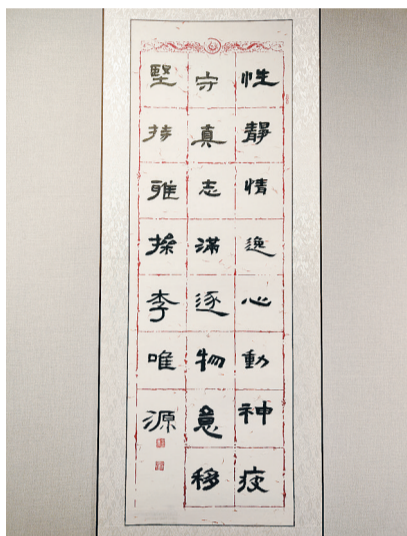 性静情逸心動神疲
守真志滿逐物意移
堅持雅操李唯源